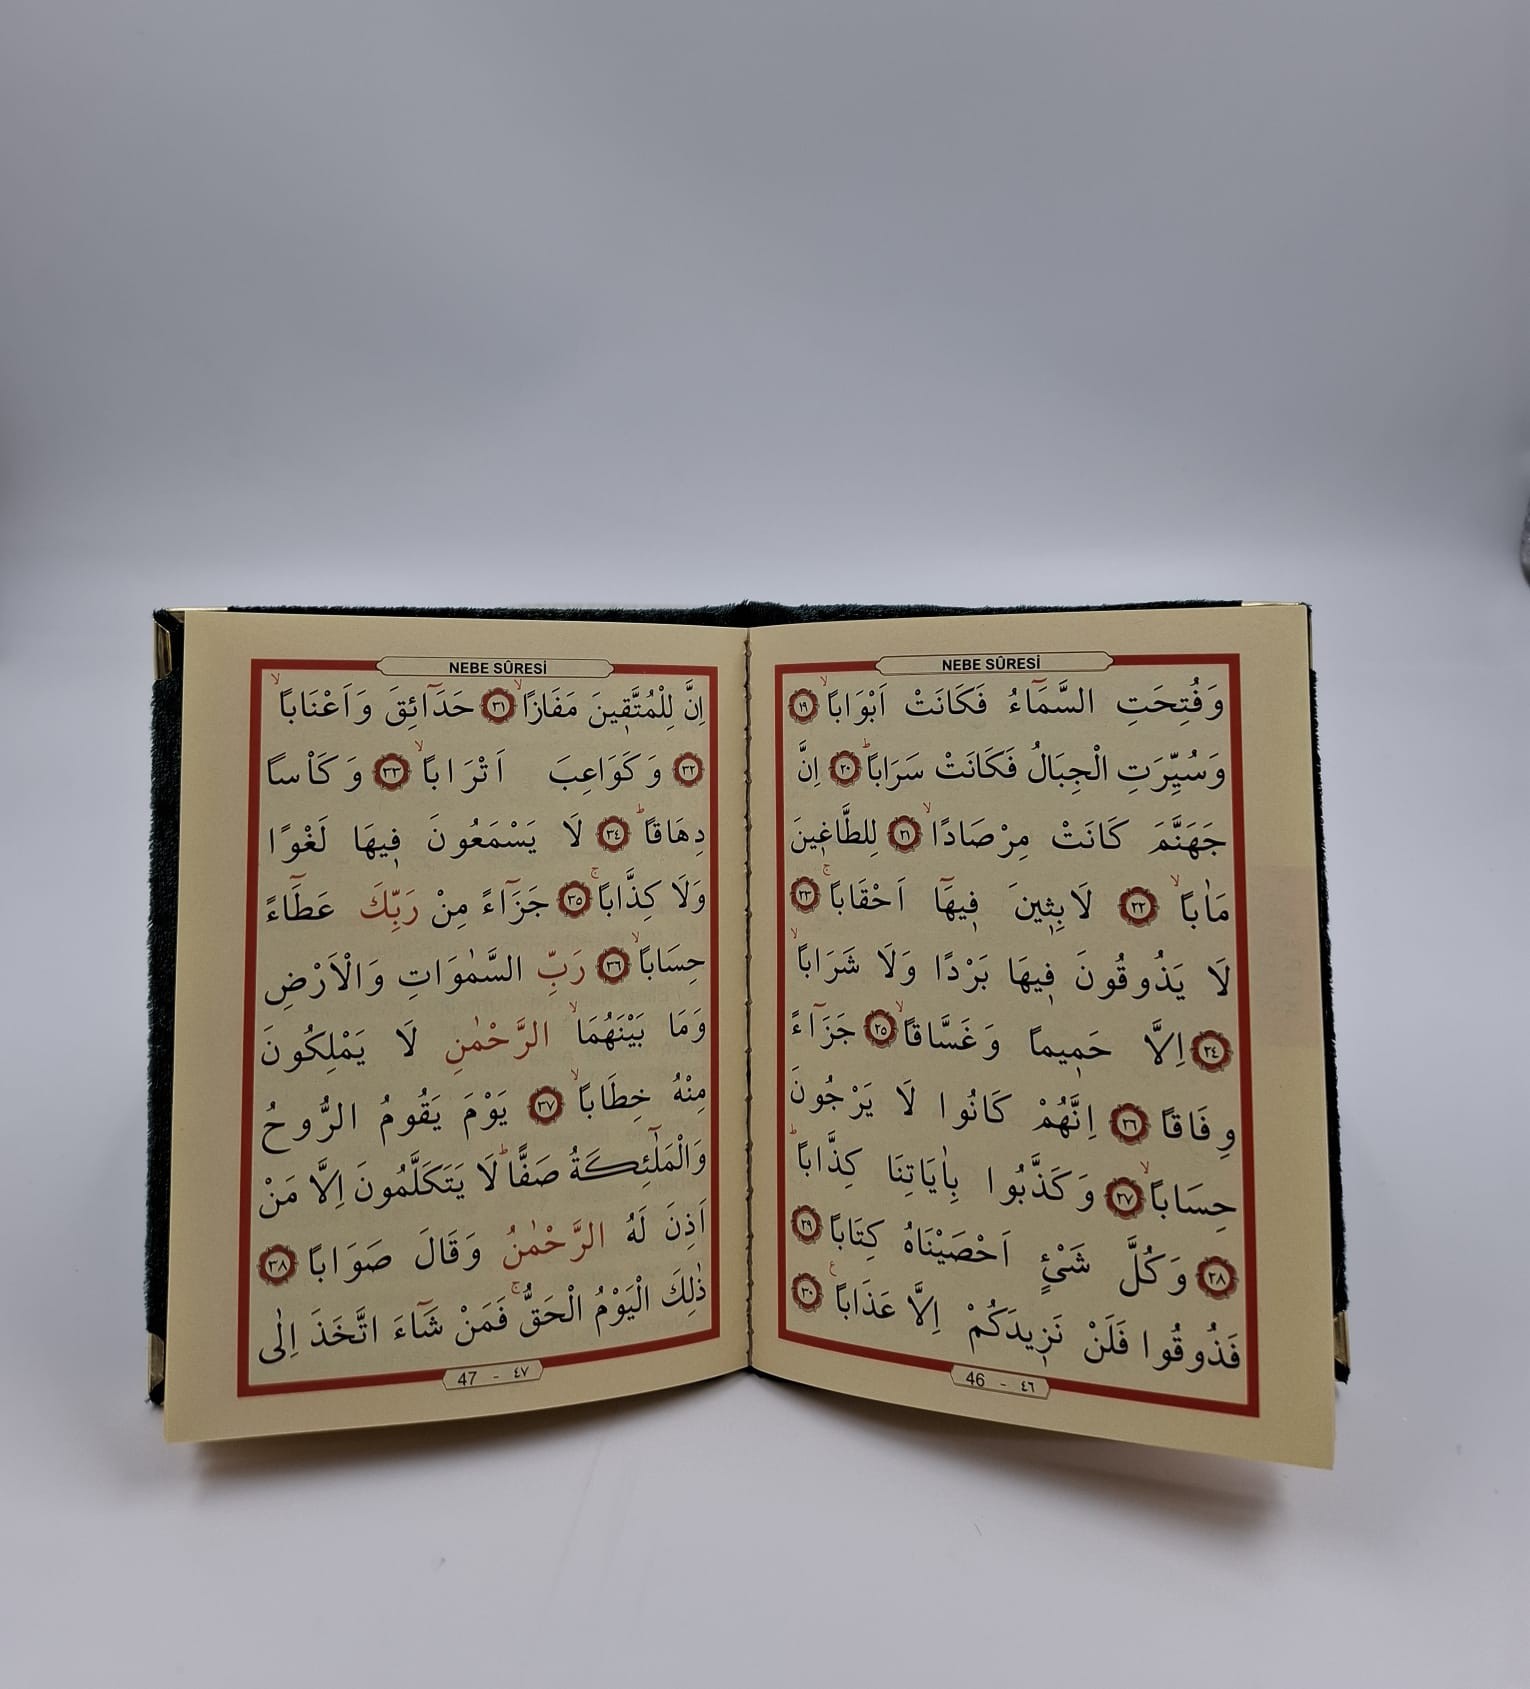 NEBE SÛRESİ
وَفُتِحَتِ السَّمَٓاءُ فَكَانَتْ اَبْوَاباًۙ ﴿١٩﴾
وَسُيِّرَتِ الْجِبَالُ فَكَانَتْ سَرَاباًۜ ﴿٢٠﴾ اِنَّ
جَهَنَّمَ كَانَتْ مِرْصَادًاۙ ﴿٢١﴾ لِلطَّاغ۪ينَ
مَاٰباًۙ ﴿٢٢﴾ لَابِث۪ينَ ف۪يهَٓا اَحْقَاباًۚ ﴿٢٣﴾
لَا يَذُوقُونَ ف۪يهَا بَرْدًا وَلَا شَرَاباًۙ
﴿٢٤﴾ اِلَّا حَم۪يماً وَغَسَّاقاًۙ ﴿٢٥﴾ جَزَٓاءً
وِفَاقاً ﴿٢٦﴾ اِنَّهُمْ كَانُوا لَا يَرْجُونَ
حِسَاباًۙ ﴿٢٧﴾ وَكَذَّبُوا بِاٰيَاتِنَا كِذَّاباًۜ
﴿٢٨﴾ وَكُلَّ شَيْءٍ اَحْصَيْنَاهُ كِتَاباً ﴿٢٩﴾
فَذُوقُوا فَلَنْ نَز۪يدَكُمْ اِلَّا عَذَاباًع ﴿٣٠﴾
46 - ٤٦
NEBE SÛRESİ
اِنَّ لِلْمُتَّق۪ينَ مَفَازًاۙ ﴿٣١﴾ حَدَٓائِقَ وَاَعْنَاباًۙ
﴿٣٢﴾ وَكَوَاعِبَ اَتْرَاباًۙ ﴿٣٣﴾ وَكَأْساً
دِهَاقاًۜ ﴿٣٤﴾ لَا يَسْمَعُونَ ف۪يهَا لَغْوًا
وَلَا كِذَّاباًۚ ﴿٣٥﴾ جَزَٓاءً مِنْ رَبِّكَ عَطَٓاءً
حِسَاباًۙ ﴿٣٦﴾ رَبِّ السَّمٰوَاتِ وَالْاَرْضِ
وَمَا بَيْنَهُمَاۙ الرَّحْمٰنِ لَا يَمْلِكُونَ
مِنْهُ خِطَاباًۙ ﴿٣٧﴾ يَوْمَ يَقُومُ الرُّوحُ
وَالْمَلٰٓئِكَةُ صَفًّاۜ لَا يَتَكَلَّمُونَ اِلَّا مَنْ
اَذِنَ لَهُ الرَّحْمٰنُ وَقَالَ صَوَاباً ﴿٣٨﴾
ذٰلِكَ الْيَوْمُ الْحَقُّۚ فَمَنْ شَٓاءَ اتَّخَذَ اِلٰى
47 - ٤٧